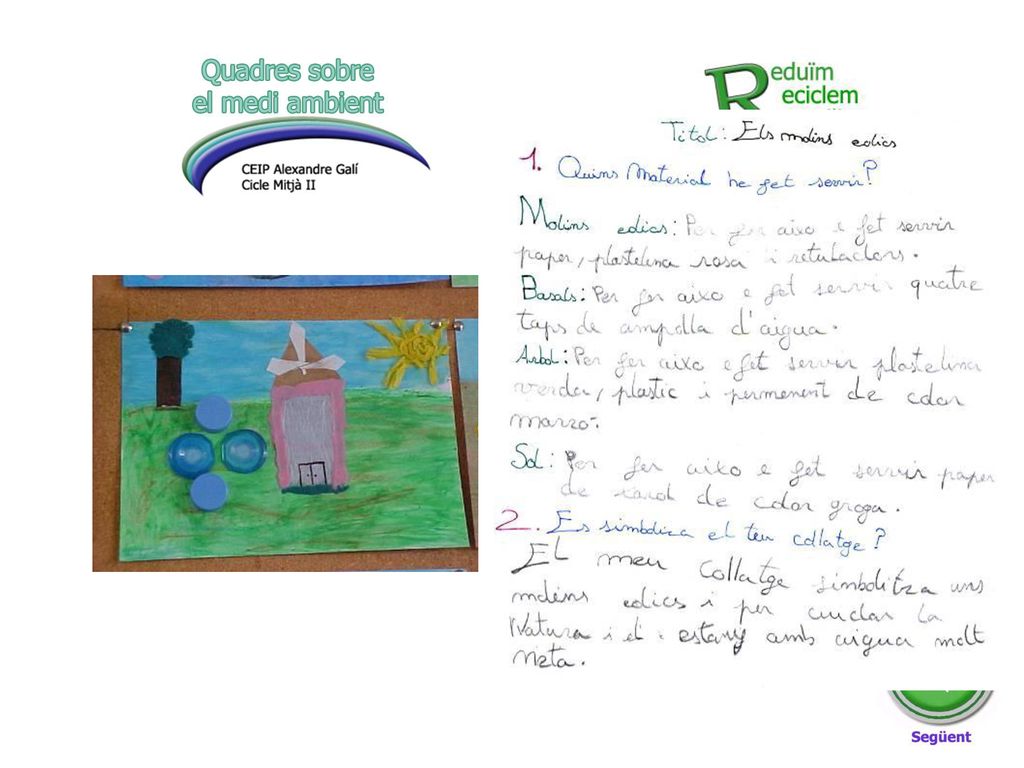 Quadres sobre
el medi ambient
CEIP Alexandre Galí
Cicle Mitjà II
Reduïm
Reciclem
Titol: Els molins eolics
1. Quins Material he fet servir?
Molins eolics: Per fer aixo e fet servir
paper, plastelina rosa i retuladors.
Basals: Per fer aixo e fet servir quatre
taps de ampolla d'aigua.
Arbol: Per fer aixo e fet servir plastelina
verda, plastic i permenent de color
marro.
Sol: Per fer aixo e fet servir paper
de color groga.
2. Es simboliza el teu collatge?
El meu collatge simbolitza uns
molins eolics i per cuidar la
Natura i el estany amb aigua molt
neta.
Següent